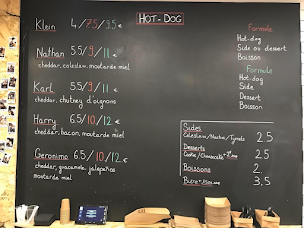 HOT-DOG
Klein 4/7.5/9.5€
Nathan 5.5/9/11
cheddar, coleslaw, moutarde miel
Karl 5.5/9/11€
cheddar, chutney d'oignons
Harry 6.5/10/12€
cheddar, bacon, moutarde miel
Geronimo 6.5/10/12€
cheddar, guacamole, jalapeños
moutarde miel
Formule
Hot-dog
Side ou dessert
Boisson
Formule
Hot-dog
Side
Dessert
Boisson
Sides
Coleslaw/Nachos/ 2.5
Desserts
Cookie/Cheesecake 2.5
Boissons 2
Bière 3.5